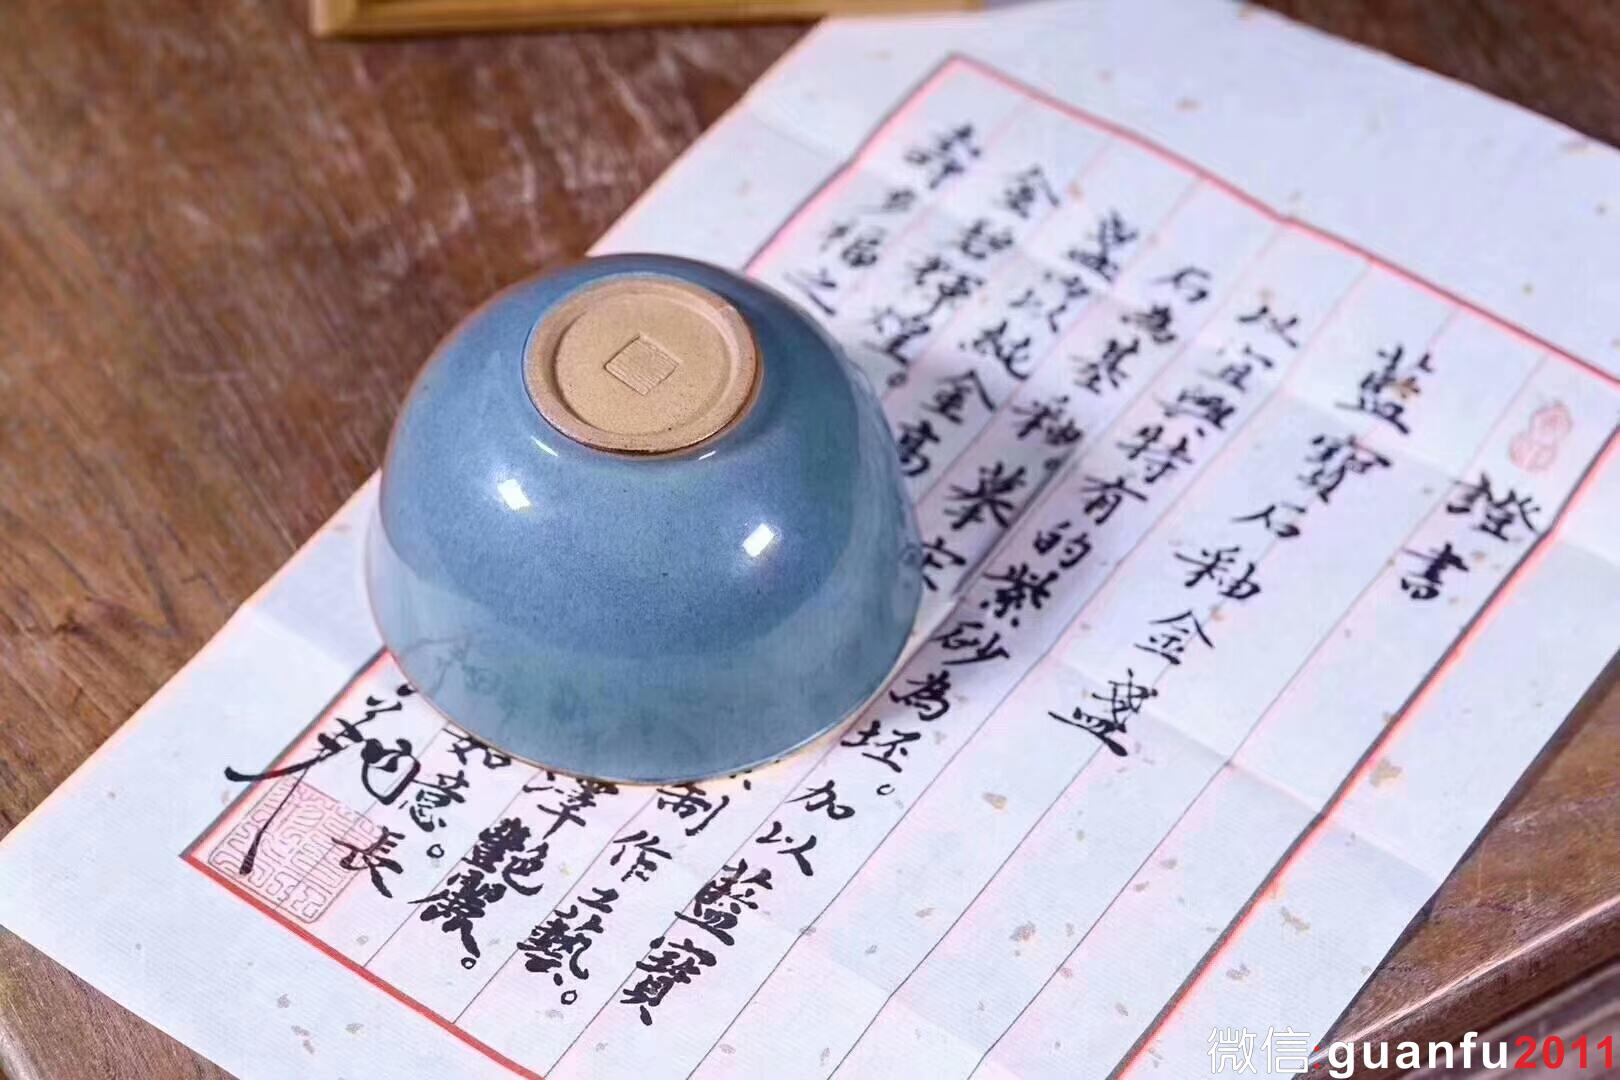 證書
藍寶石釉金盞
以宜興特有的紫砂為坯。加以藍寶
石為基釉。舉宋 制作工藝。
盞內以純金高 澤艷麗。
金碧輝煌。 如意。長
壽多福之
微信:guanfu2011